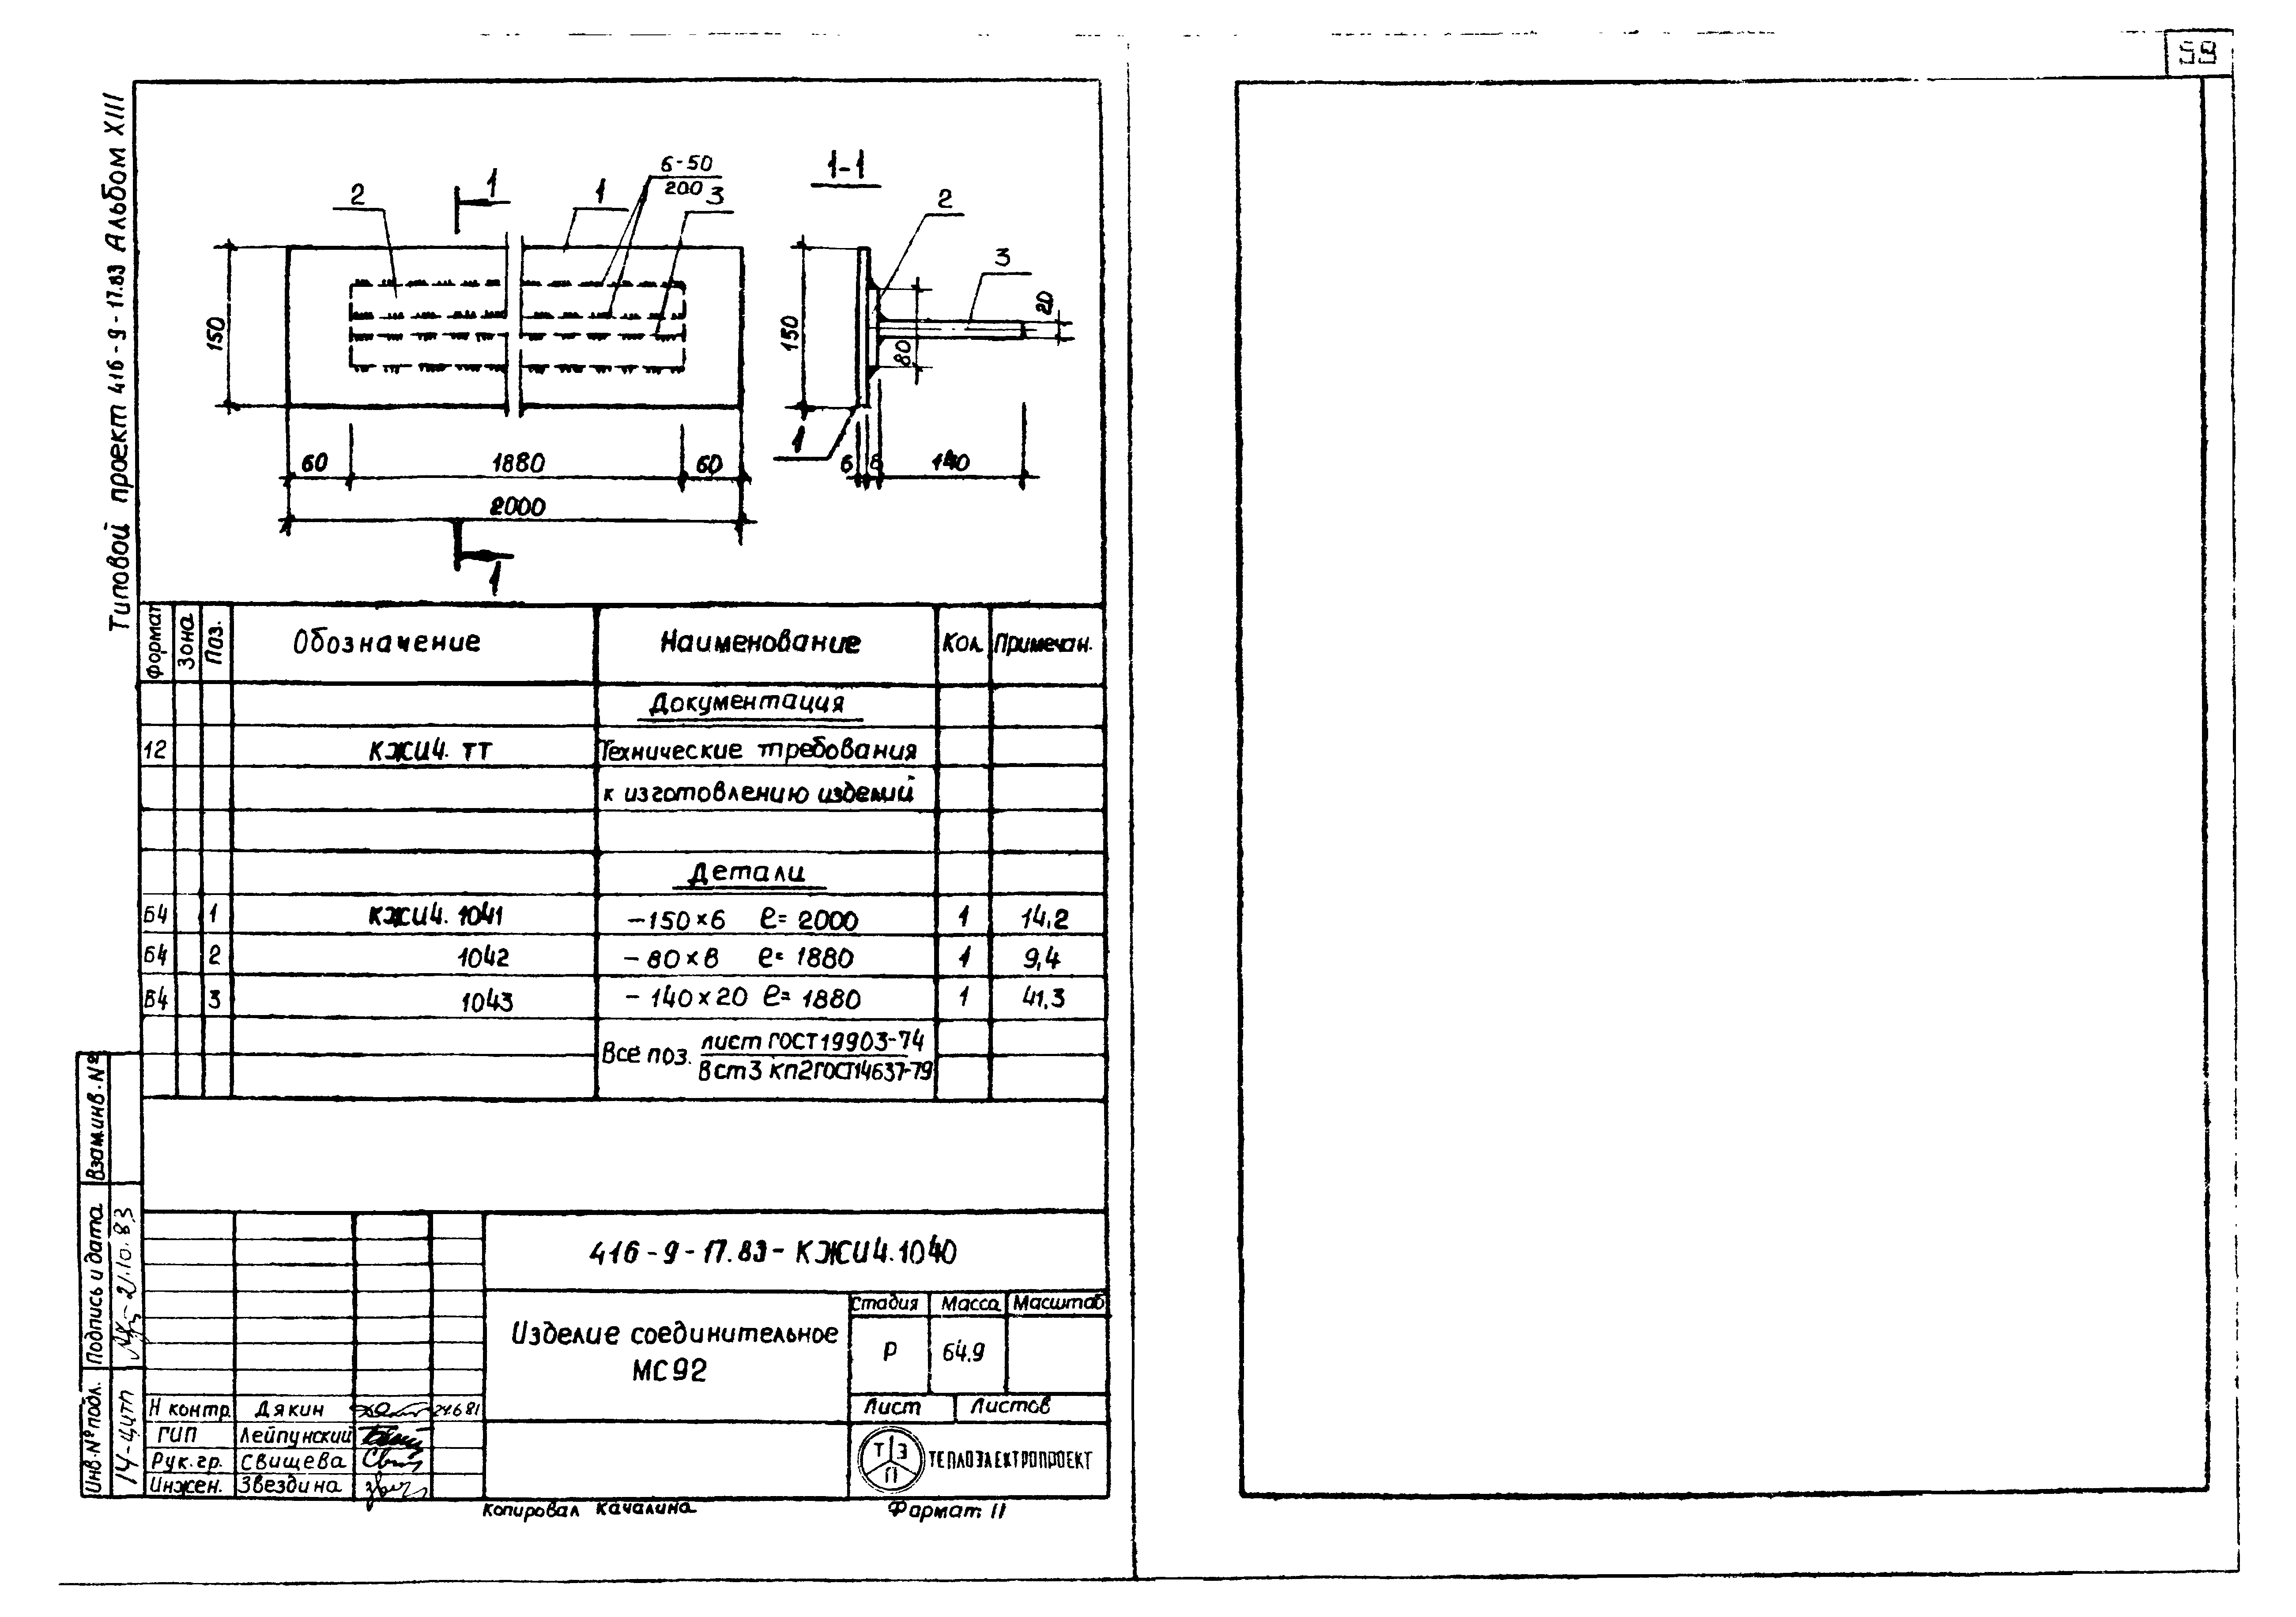 59
Типовой проект 416-9-17.83 Альбом XIII
6-50
200
2
1
1
3
150
60
1880
60
2000
1
1-1
2
3
20
150
80
1
6
8
140
Формат Зона Поз. Обозначение Наименование Кол Примечан.
Документация
12 КЖИ4. ТТ Технические требования
к изготовлению изделий
Детали
Б4 1 КЖИ4. 1041 -150×6 ℓ= 2000 1 14,2
Б4 2 1042 - 80×8 ℓ= 1880 1 9,4
Б4 3 1043 - 140×20 ℓ= 1880 1 41,3
Все поз. лист ГОСТ 19903-74
Вст3 кп2 ГОСТ14637-79
Взам.инв.№
Подпись и дата
21.10.83
Инв.№ подл.
416-9-17.83-КЖИ4.1040
Изделие соединительное
МС92
Стадия Масса Масштаб
Р 64,9
Лист Листов
Н контр. Дякин 24.6.81
ГИП Лейпунский
Рук.гр. Свищева
Инжен. Звездина
ТЭП ТЕПЛОЭЛЕКТРОПРОЕКТ
Копировал Качалина Формат 11